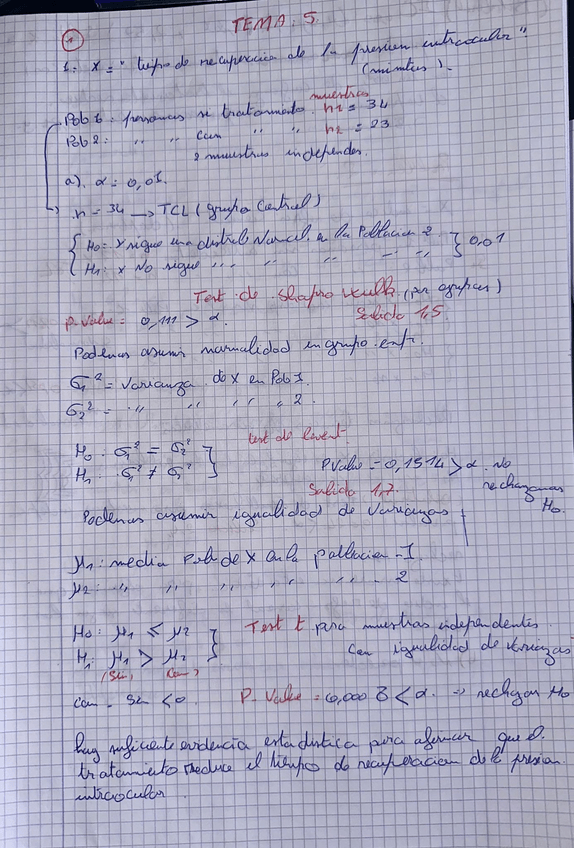 TEMA. 5.
1
1. X = "tiempo de recuperacion de la presion intraocular".
(minutos).
muestras
Pob 1: personas sin tratamiento. n1 = 34
Pob 2: " " con " " n2 = 23
2 muestras independ.
a). α = 0,01.
n = 34 → TCL (grupo Control)
H0 = X sigue una distrib Normal en la Poblacion 2 } 0,01
H1: X No sigue " " " " "
Test de Shapiro Wilk (por grupos)
P. Value = 0,111 > α. Salida 1,5.
Podemos asumir normalidad en grupo
σ1² = Varianza de X en Pob 1.
σ2² = " " " " 2.
test de Levent
H0: σ1² = σ2²
H1: σ1² ≠ σ2²
P Value = 0,1514 > α. No
rechazamos
H0.
Salida 1,7.
Podemos asumir igualdad de Varianzas
μ1: media Pob de X en la poblacion - 1.
μ2: " " " " " - 2
H0: μ1 ≤ μ2
H1: μ1 > μ2
(Sin) (Con)
Test t para muestras independentes
Con igualdad de Varianzas
Con - Sin < 0. P. Value = 0,0008 < α. ⇒ rechazar H0
hay suficiente evidencia estadistica para afirmar que el
tratamiento reduce el tiempo de recuperacion de la presion
intraocular.